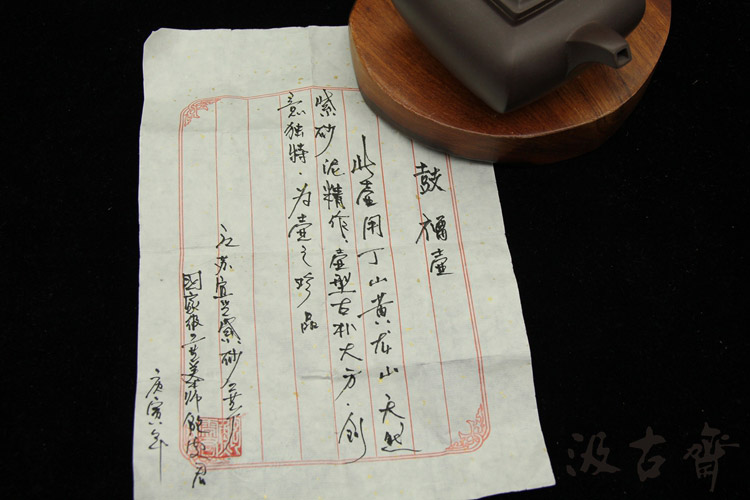 鼓禧壶
此壶用丁山黄龙山天然
紫砂泥精作、壶型古朴大方、创
意独特、为壶之珍品
江苏宜兴紫砂工艺厂
国家级工艺美术师鲍志君
庚寅年
汲古齋